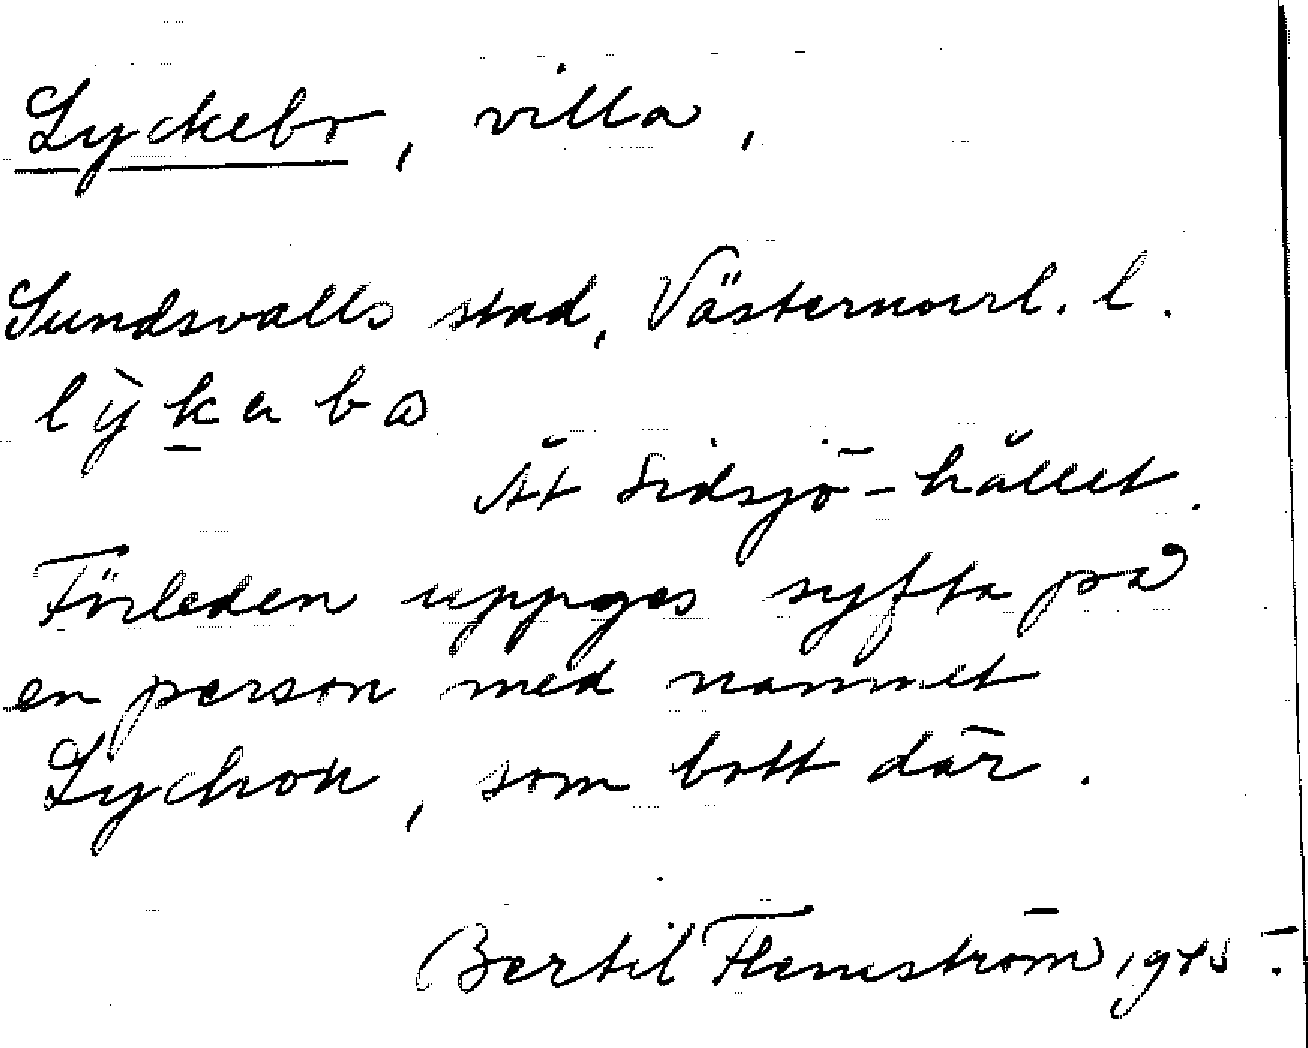 Lyckebo, villa,
Sundsvalls stad, Västernorrl. l.
lỳkebo
Åt Sidsjö-hållet.
Förleden uppges syfta på
en person med namnet
Lychon, som bott där.
Bertil Flemström, 1945.